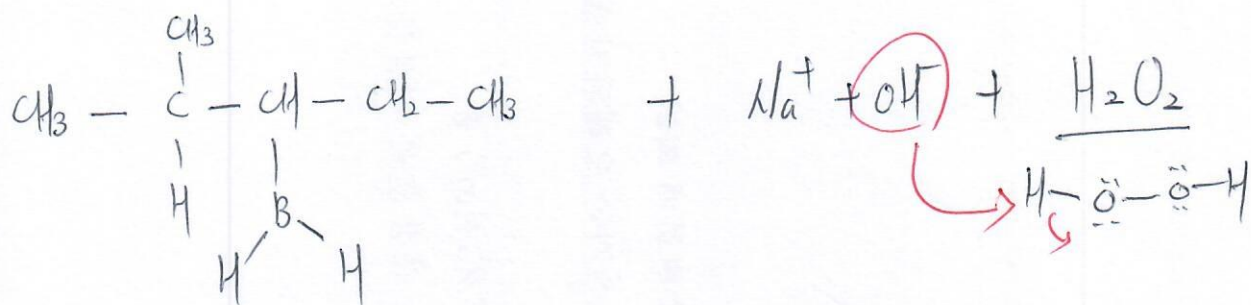 CH₃
CH₃ — C — CH — CH₂ — CH₃ + Na⁺ + OH⁻ + H₂O₂
H B H — O — O — H
H H